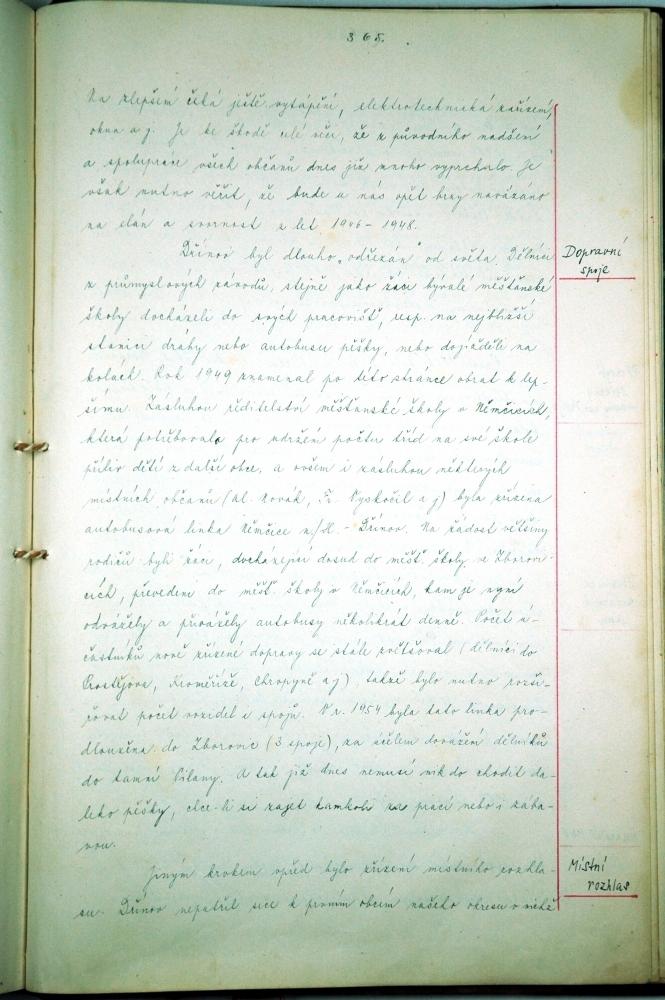 365.
Na zlepšení čeká ještě vytápění, elektrotechnická zařízení,
okna a j. Je ke škodě celé věci, že z původního nadšení
a spolupráce všech občanů dnes již mnoho vyprchalo. Je
však nutno věřit, že bude u nás opět brzy navázáno
na elán a svornost z let 1946 - 1948.
Dopravní
spoje
Dřínov byl dlouho „odřezán" od světa. Dělníci
z průmyslových závodů, stejně jako žáci bývalé měšťanské
školy docházeli do svých pracovišť, resp. na nejbližší
stanici dráhy nebo autobusu pěšky, nebo dojížděli na
kolách. Rok 1949 znamenal po této stránce obrat k lep-
šímu. Zásluhou ředitelství měšťanské školy v Němčicích,
která potřebovala pro udržení počtu tříd na své škole
příliv dětí z další obce, a ovšem i zásluhou některých
místních občanů (Al. Novák, Fr. Vyskočil a j) byla zřízena
autobusová linka Němčice n/H. - Dřínov. Na žádost většiny
rodičů byli žáci, docházející dosud do měšť. školy ve Zborovi-
cích, převedeni do měšť. školy v Němčicích, kam je nyní
odvážely a přivážely autobusy několikrát denně. Počet ú-
častníků nově zřízené dopravy se stále zvětšoval (dělníci do
Prostějova, Kroměříže, Chropyně a j), takže bylo nutno rozši-
řovat počet vozidel i spojů. V r. 1954 byla tato linka pro-
dloužena do Zborovic (3 spoje), za účelem dovážení dělníků
do tamní Pilany. A tak již dnes nemusí nikdo chodit da-
leko pěšky, chce-li si zajet kamkoli za prací nebo i zába-
vou.
Místní
rozhlas
Jiným krokem vpřed bylo zřízení místního rozhla-
su. Dřínov nepatřil sice k prvním obcím našeho okresu v nichž